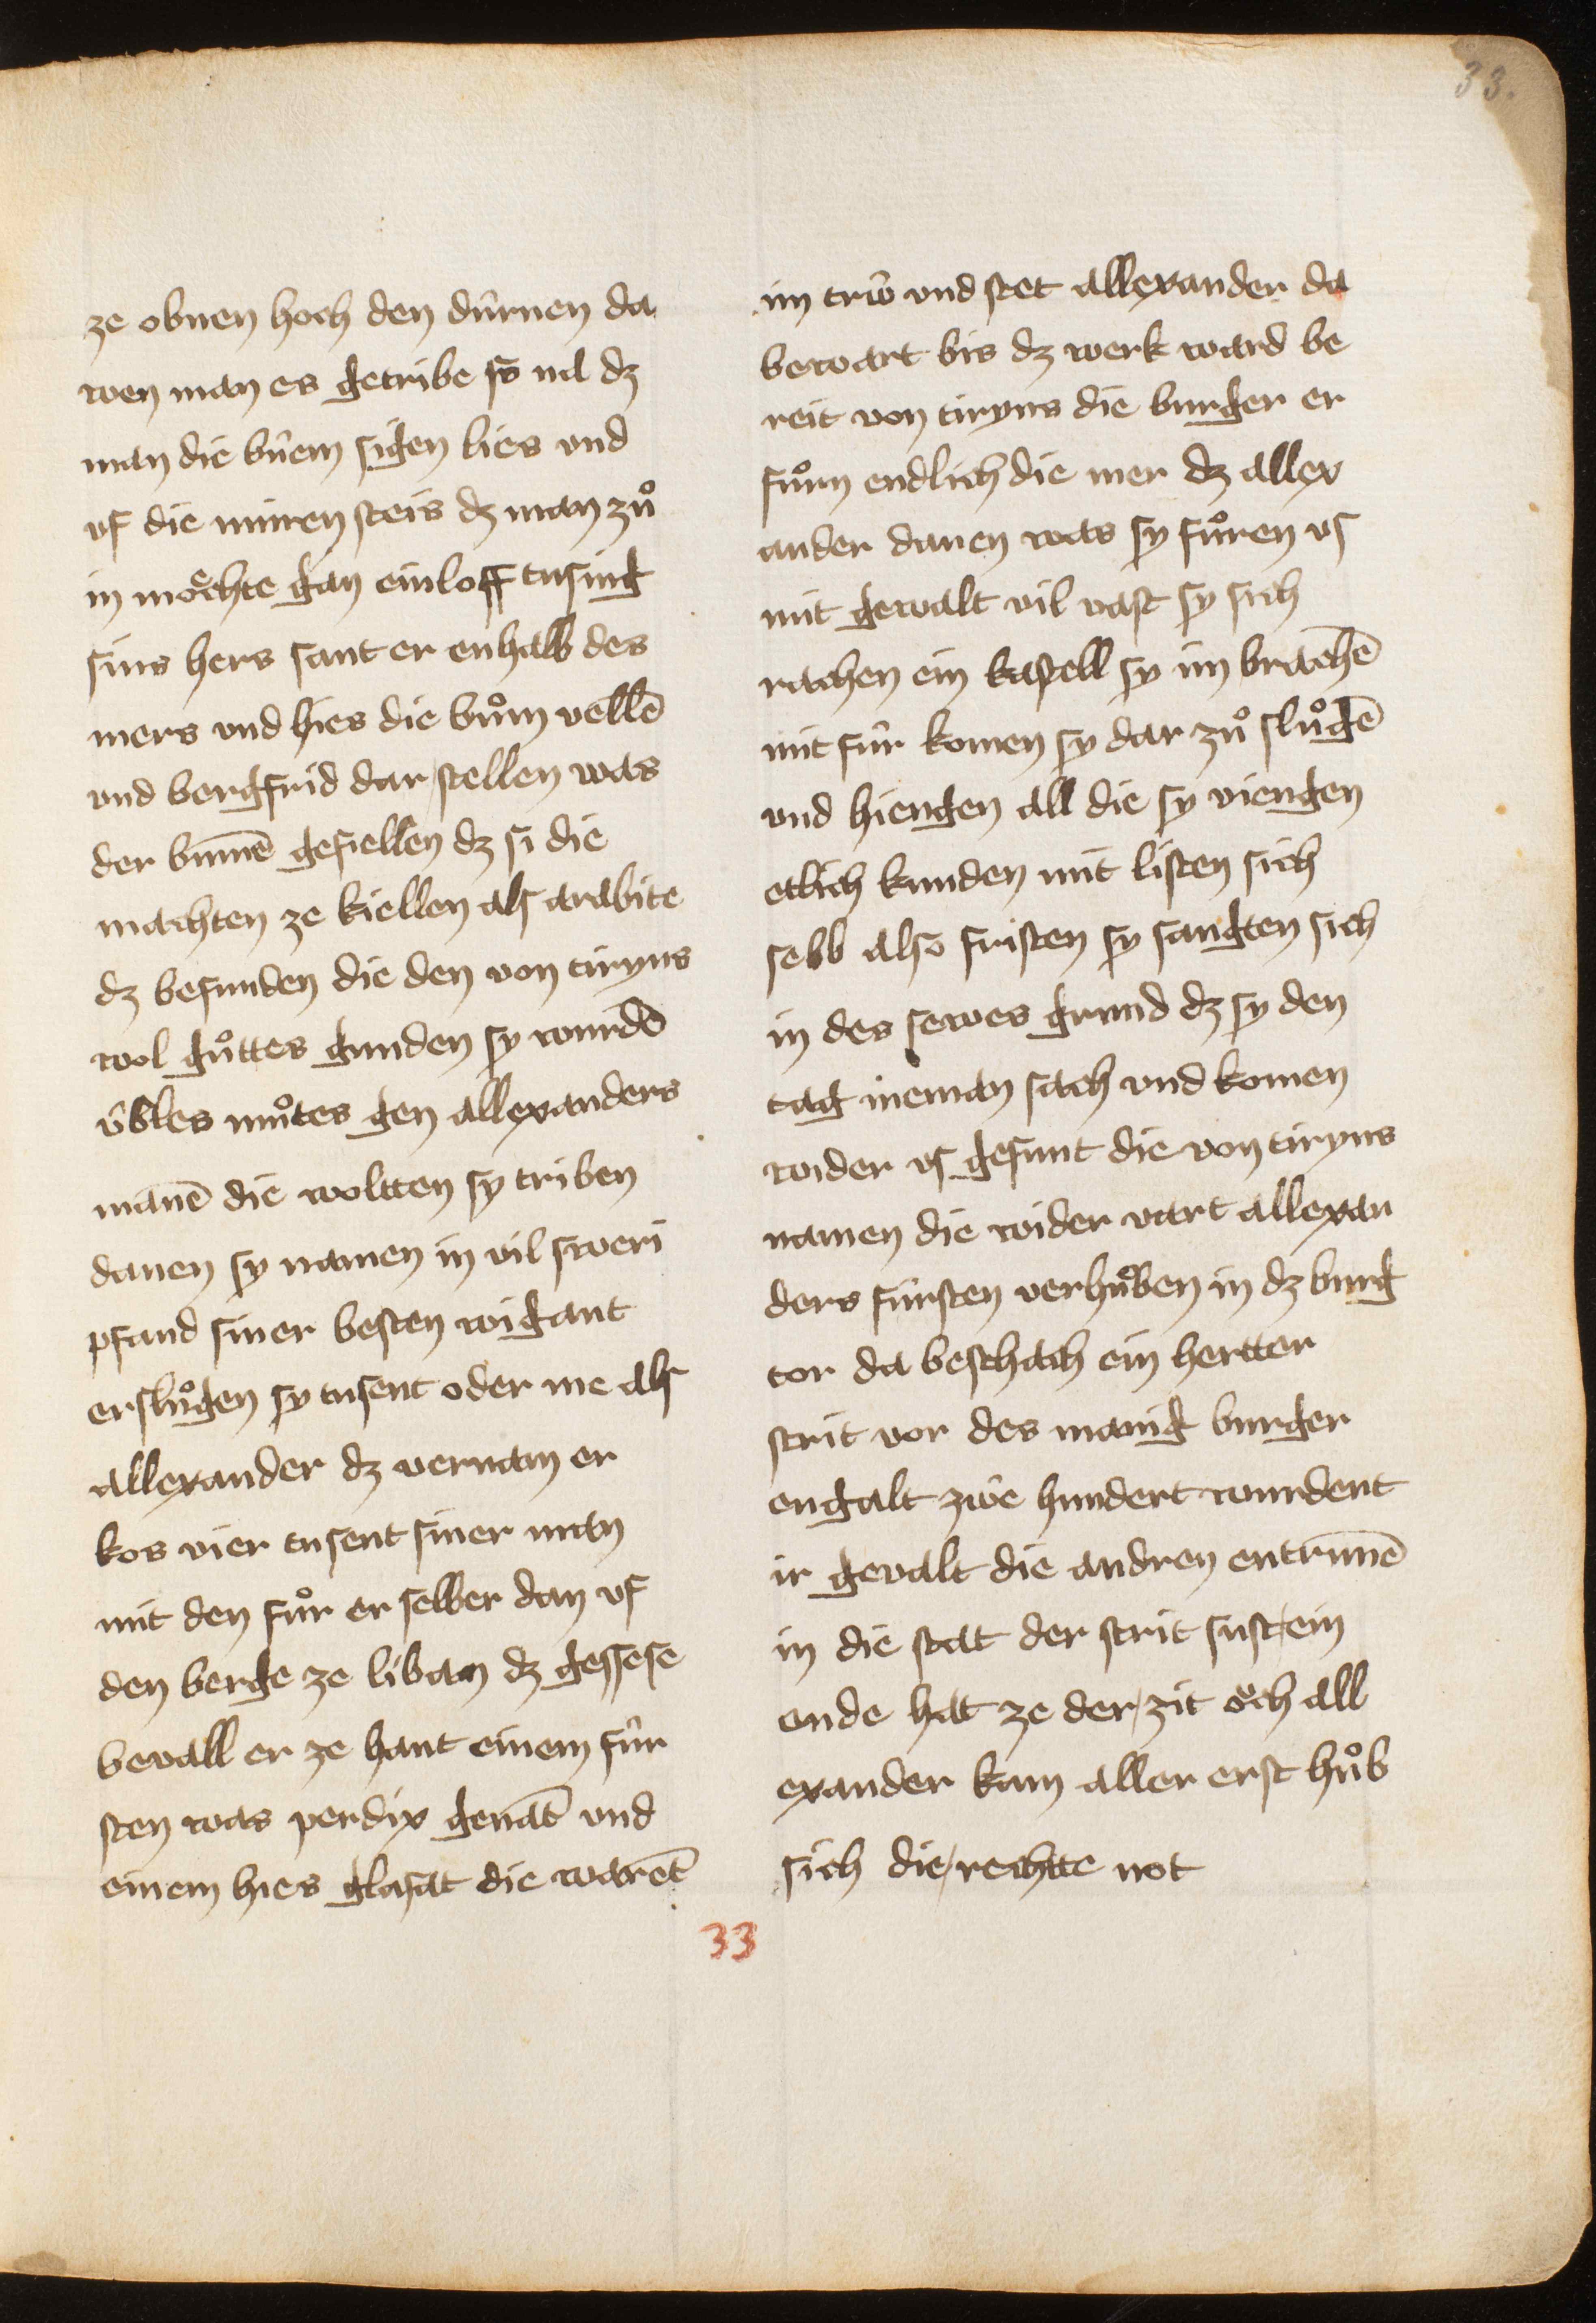 33.
ze obnen hoch den dúrnen da
wen man es getribe so nâ dz
man die bŭem sigen lies vnd
vf die muren steis dz man zuͦ
in moͤchte gan einloff tusing
sins hers sant er enhalb des
mers vnd hies die buͦm vellē
vnd bergfrid dar stellen was
der bumē gefiellen dz si die
machten ze kiellen als arabite
dz befunden die den von tiryns
wol guͦttes gunden sy wurdē
úbles muͦtes gen allexanders
manē die woltten sy triben
danen sy namen in vil sweri
pfand siner besten wigant
ersluͦgen sy tusent oder me als
allexander dz vernam er
kos vier tusent siner man
mit den fuͦr er selber dan vf
den berge ze liban dz gessese
bevall er ze hant einem fúr
sten was perdix genāt vnd
einem hies glasat die warēt
im trúw vnd stet allexander da
bewart bis dz werk ward be
reit von tiryns die burger er
fuͦrn endlich die mer dz allex
ander danen was sy fuͦren vs
mit gewalt vil vast sy sich
rachen ein kastell sy im brachē
mit fúr komen sy dar zuͦ sluͦgē
vnd hiengen all die sy viengen
etlich kunden mit listen sich
selb also fristen sy sangten sich
in des sewes grund dz sy den
tag nieman sach vnd komen
wider vs gesunt die von tiryns
namen die wider vart allexan
ders fúrsten verhuͦben in dz burg
tor da beschach ein hertter
strit vor des manig burger
engalt zwe hundert wurdent
ir gevalt die andren entrunē
in die stat der strit sust ein
ende hat ze der zit oͮch all
exander kam aller erst huͦb
sich die rechtte not
33